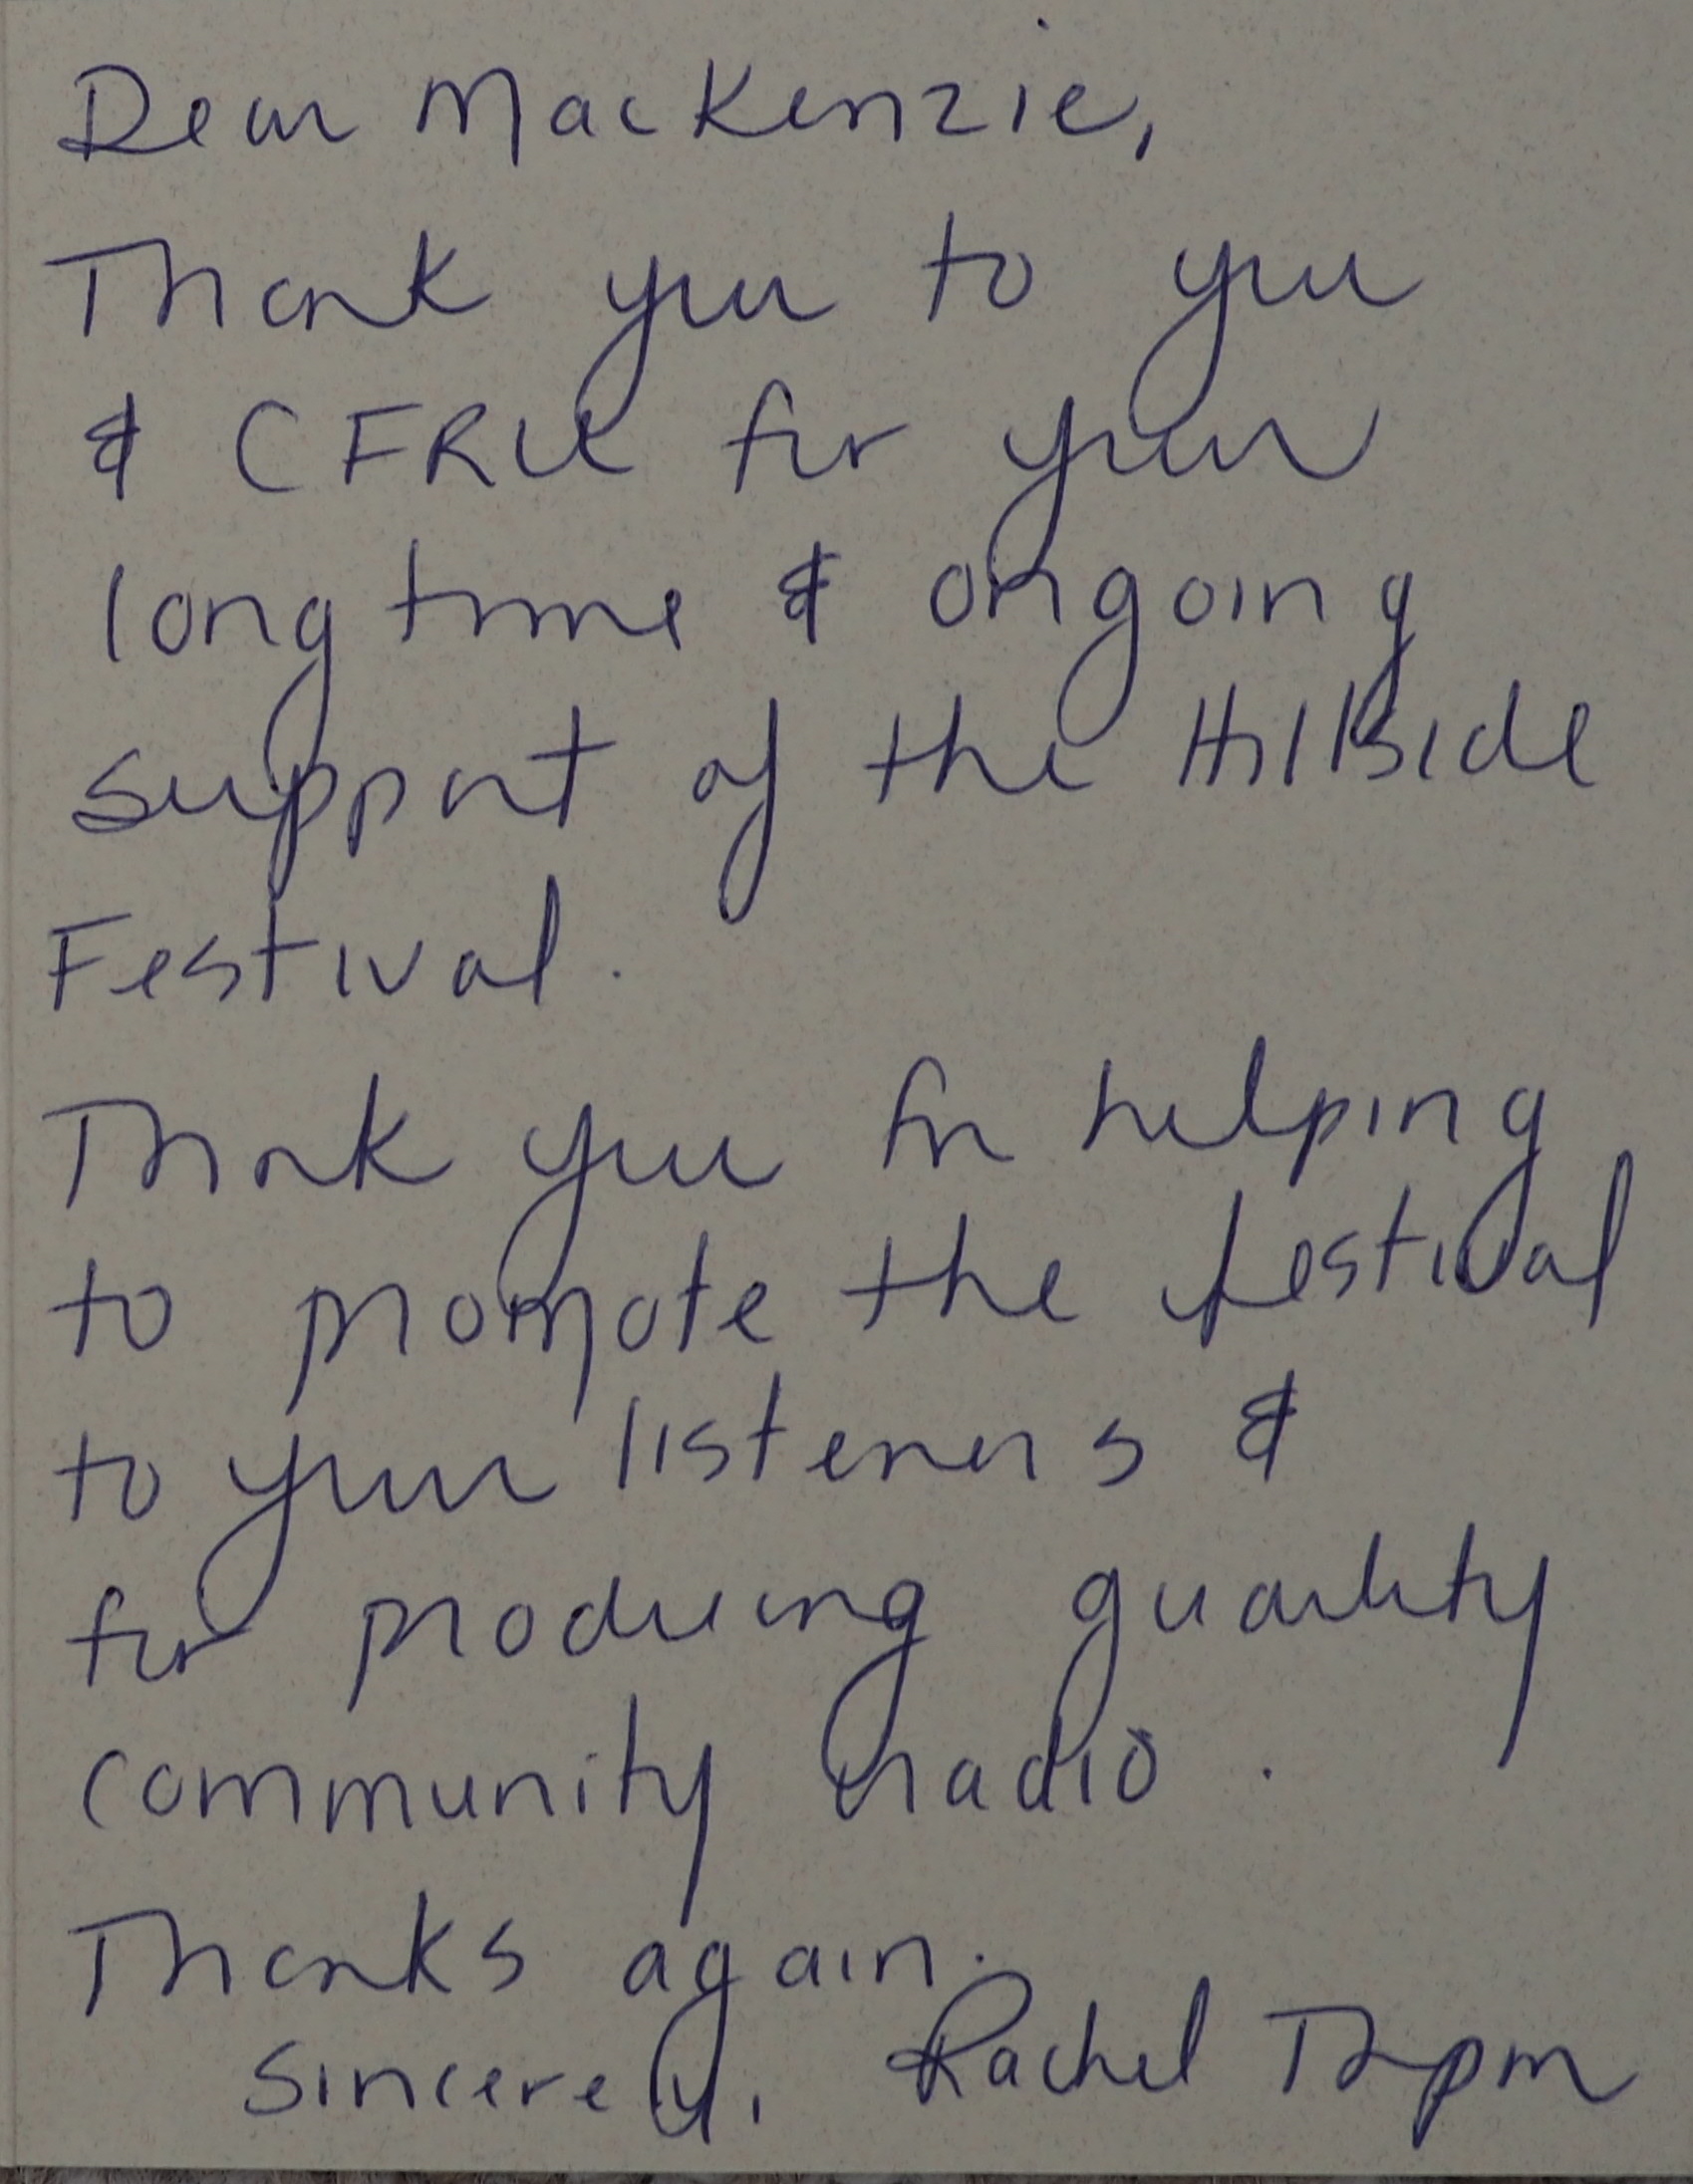 Dear MacKenzie,
Thank you to you
& CFRU for your
longtime & ongoing
support of the Hillside
Festival.
Thank you for helping
to promote the festival
to your listeners &
for producing quality
community radio.
Thanks again.
Sincerely, Rachel